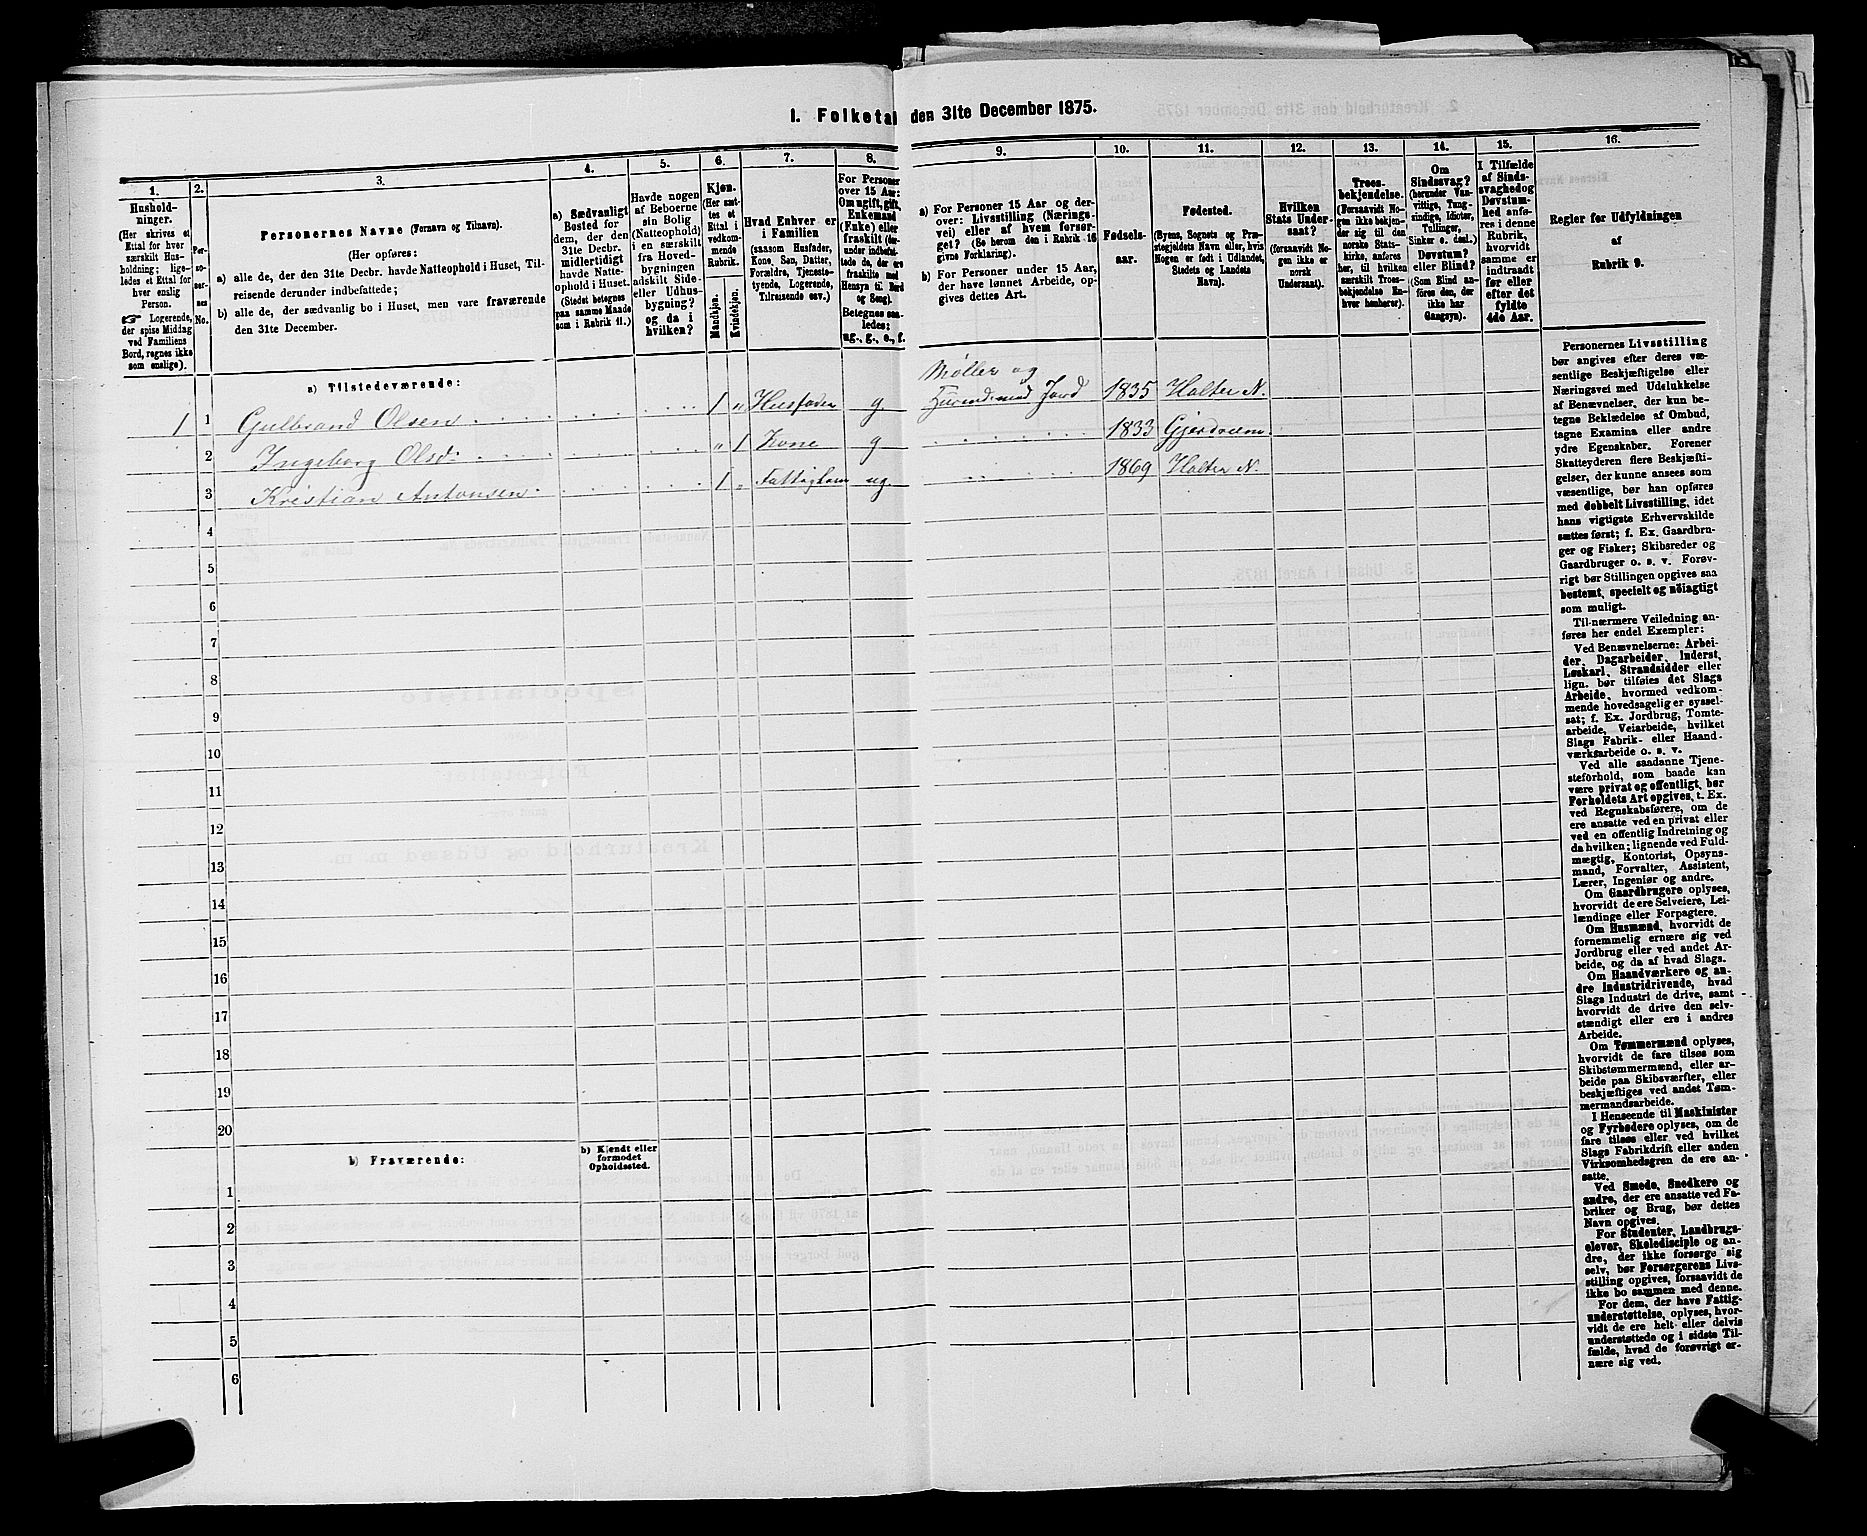 I. Folketal den 31te December 1875.
1.
Hushold-
ninger.
(Her skrives et
Ettal for hver
særskilt Hus-
holdning; lige-
ledes et Ettal for
hver enslig
Person.
☞ Logerende,
der spise Middag
ved Familiens
Bord, regnes ikke
som enslige).
2.
Per-
so-
ner-
nes
No.
3.
Personernes Navne (Fornavn og Tilnavn).
(Her opføres:
a) alle de, der den 31te Decbr. havde Natteophold i Huset, Til-
reisende derunder indbefattede;
b) alle de, der sædvanlig bo i Huset, men vare fraværende
den 31te December.
4.
a) Sædvanligt
Bosted for
dem, der den
31te Decbr.
midlertidigt
havde Natte-
ophold i Huset.
(Stedet betegnes
paa samme Maade
som i Rubrik 11.)
5.
Havde nogen
af Beboerne
sin Bolig
(Natteophold)
i en særskilt
fra Hoved-
bygningen
adskilt Side-
eller Udhus-
bygning?
og da i
hvilken?
6.
Kjøn.
(Her sæt-
tes et
Ettal i
vedkom-
mende
Rubrik.
Mandkjøn.
Kvindekjøn.
7.
Hvad Enhver er
i Familien
(saasom Husfader,
Kone, Søn, Datter,
Forældre, Tjeneste-
tyende, Logerende,
Tilreisende osv.)
8.
For Personer
over 15 Aar:
Om ugift, gift,
Enkemand
(Enke) eller
fraskilt (der-
under indbefat-
tede de, der ere
fraskilte med
Hensyn til Bord
og Seng).
Betegnes saa-
ledes:
ug., g., e., f.
9.
a) For Personer 15 Aar og der-
over: Livsstilling (Nærings-
vei) eller af hvem forsør-
get? (Se herom den i Rubrik 16
givne Forklaring).
b) For Personer under 15 Aar,
der have lønnet Arbeide, op-
gives dettes Art.
10.
Fødsels-
aar.
11.
Fødested.
(Byens, Sognets og Præ-
stegjeldets Navn eller, hvis
Nogen er født i Udlandet,
Stedets og Landets
Navn).
12.
Hvilken
Stats Under-
saat?
(forsaavidt No-
gen ikke er
norsk
Undersaat).
13.
Troes-
bekjendelse.
(Forsaavidt No-
gen ikke bekjen-
der sig til den
norske Stats-
kirke, anføres
her, til hvilken
særskilt Troes-
bekjendelse En-
hver henhører).
14.
Om
Sindssvag?
(herunder Van-
vittige, Tung-
sindige, Idioter,
Tullinger,
Sinker o. desl.)
Døvstum?
eller Blind?
(Som Blind an-
føres den, der
ikke har
Gangsyn).
15.
I Tilfælde
af Sinds-
svaghed og
Døvstum-
hed anfø-
res i denne
Rubrik,
hvorvidt
samme er
indtraadt
før eller
efter det
fyldte
4de Aar.
16.
Regler for Udfyldningen
af
Rubrik 9.
a) Tilstedeværende:
1 1 Gulbrand Olsen 1 „ Husfader g Møller og
1835 Holter N.
2 Ingeborg Olsd. „ 1 Kone g 1833 Gjerdrum
3 Kristian Antonsen 1 „ Fattiglem ug 1869 Holter N.
4
5
6
7
8
9
10
11
12
13
14
15
16
17
18
19
20
b) Fraværende:
b) Kjendt eller
formodet
Opholdssted.
1
2
3
4
5
6
Personernes Livsstilling
bør angives efter deres væ-
sentlige Beskjæftigelse eller
Næringsvei med Udelukkelse
af Benævnelser, der kun be-
tegne Beklædelse af Ombud,
tagne Examina eller andre
ydre Egenskaber. Forener
Skatteyderen flere Beskjæfti-
gelser, der kunne ansees som
væsentlige, bør han opføres
med dobbelt Livsstilling, idet
hans vigtigste Erhvervskilde
sættes først; f. Ex. Gaardbru-
ger og Fisker; Skibsreder og
Gaardbruger o. s. v. Forøv-
rigt bør Stillingen opgives saa
bestemt, specielt og nöiagtigt
som muligt.
Til nærmere Veiledning an-
føres her endel Exempler:
Ved Benævnelserne: Arbei-
der, Dagarbeider, Inderst,
Løskarl, Strandsidder eller
lign. bør tilføies det Slags
Arbeide, hvormed vedkom-
mende hovedsagelig er syssel-
sat; f. Ex. Jordbrug, Tomte-
arbeide, Veiarbeide, hvilket
Slags Fabrik- eller Haand-
værksarbeide o. s. v.
Ved alle saadanne Tjene-
steforhold, som baade kan
være privat og offentligt, bør
Forholdets Art opgives, t. Ex.
ved Regnskabsførere, om de
ere ansatte ved en privat eller
ved en offentlig Indretning og
da hvilken; lignende ved Fuld-
mægtig, Kontorist, Opsyns-
mand, Forvalter, Assistent,
Lærer, Ingeniør og andre.
Om Gaardbrugere oplyses,
hvorvidt de ere Selveiere, Lei-
lændinge eller Forpagtere.
Om Husmænd, hvorvidt de
fornemmelig ernære sig ved
Jordbrug eller ved andet Ar-
beide, og da af hvad Slags.
Om Haandværkere og an-
dre Industridrivende, hvad
Slags Industri de drive, samt
hvorvidt de drive den selv-
stændigt eller ere i andres
Arbeide.
Om Tømmermænd oplyses,
hvorvidt de fare tilsøs som
Skibstømmermænd, eller ar-
beide paa Skibsværfter, eller
beskjæftiges ved andet Tøm-
mermandsarbeide.
I Henseende til Maskinister
og Fyrbødere oplyses, om de
fare tilsøs eller ved hvilket
Slags Fabrikdrift eller anden
Virksomhedsgren de ere an-
satte.
Ved Smede, Snedkere og
andre, der ere ansatte ved Fa-
briker og Brug, bør dettes
Navn opgives.
For Studenter, Landbrugs-
elever, Skoledisciple og an-
dre, der ikke forsørge sig
selv, bør Forsørgerens Livs-
stilling opgives, forsaavidt de
ikke bo sammen med denne.
For dem, der have Fattig-
understøttelse, oplyses, hvor-
vidt de ere helt eller delvis
understøttede og i sidste Til-
fælde, hvad de forøvrigt er-
nære sig ved.